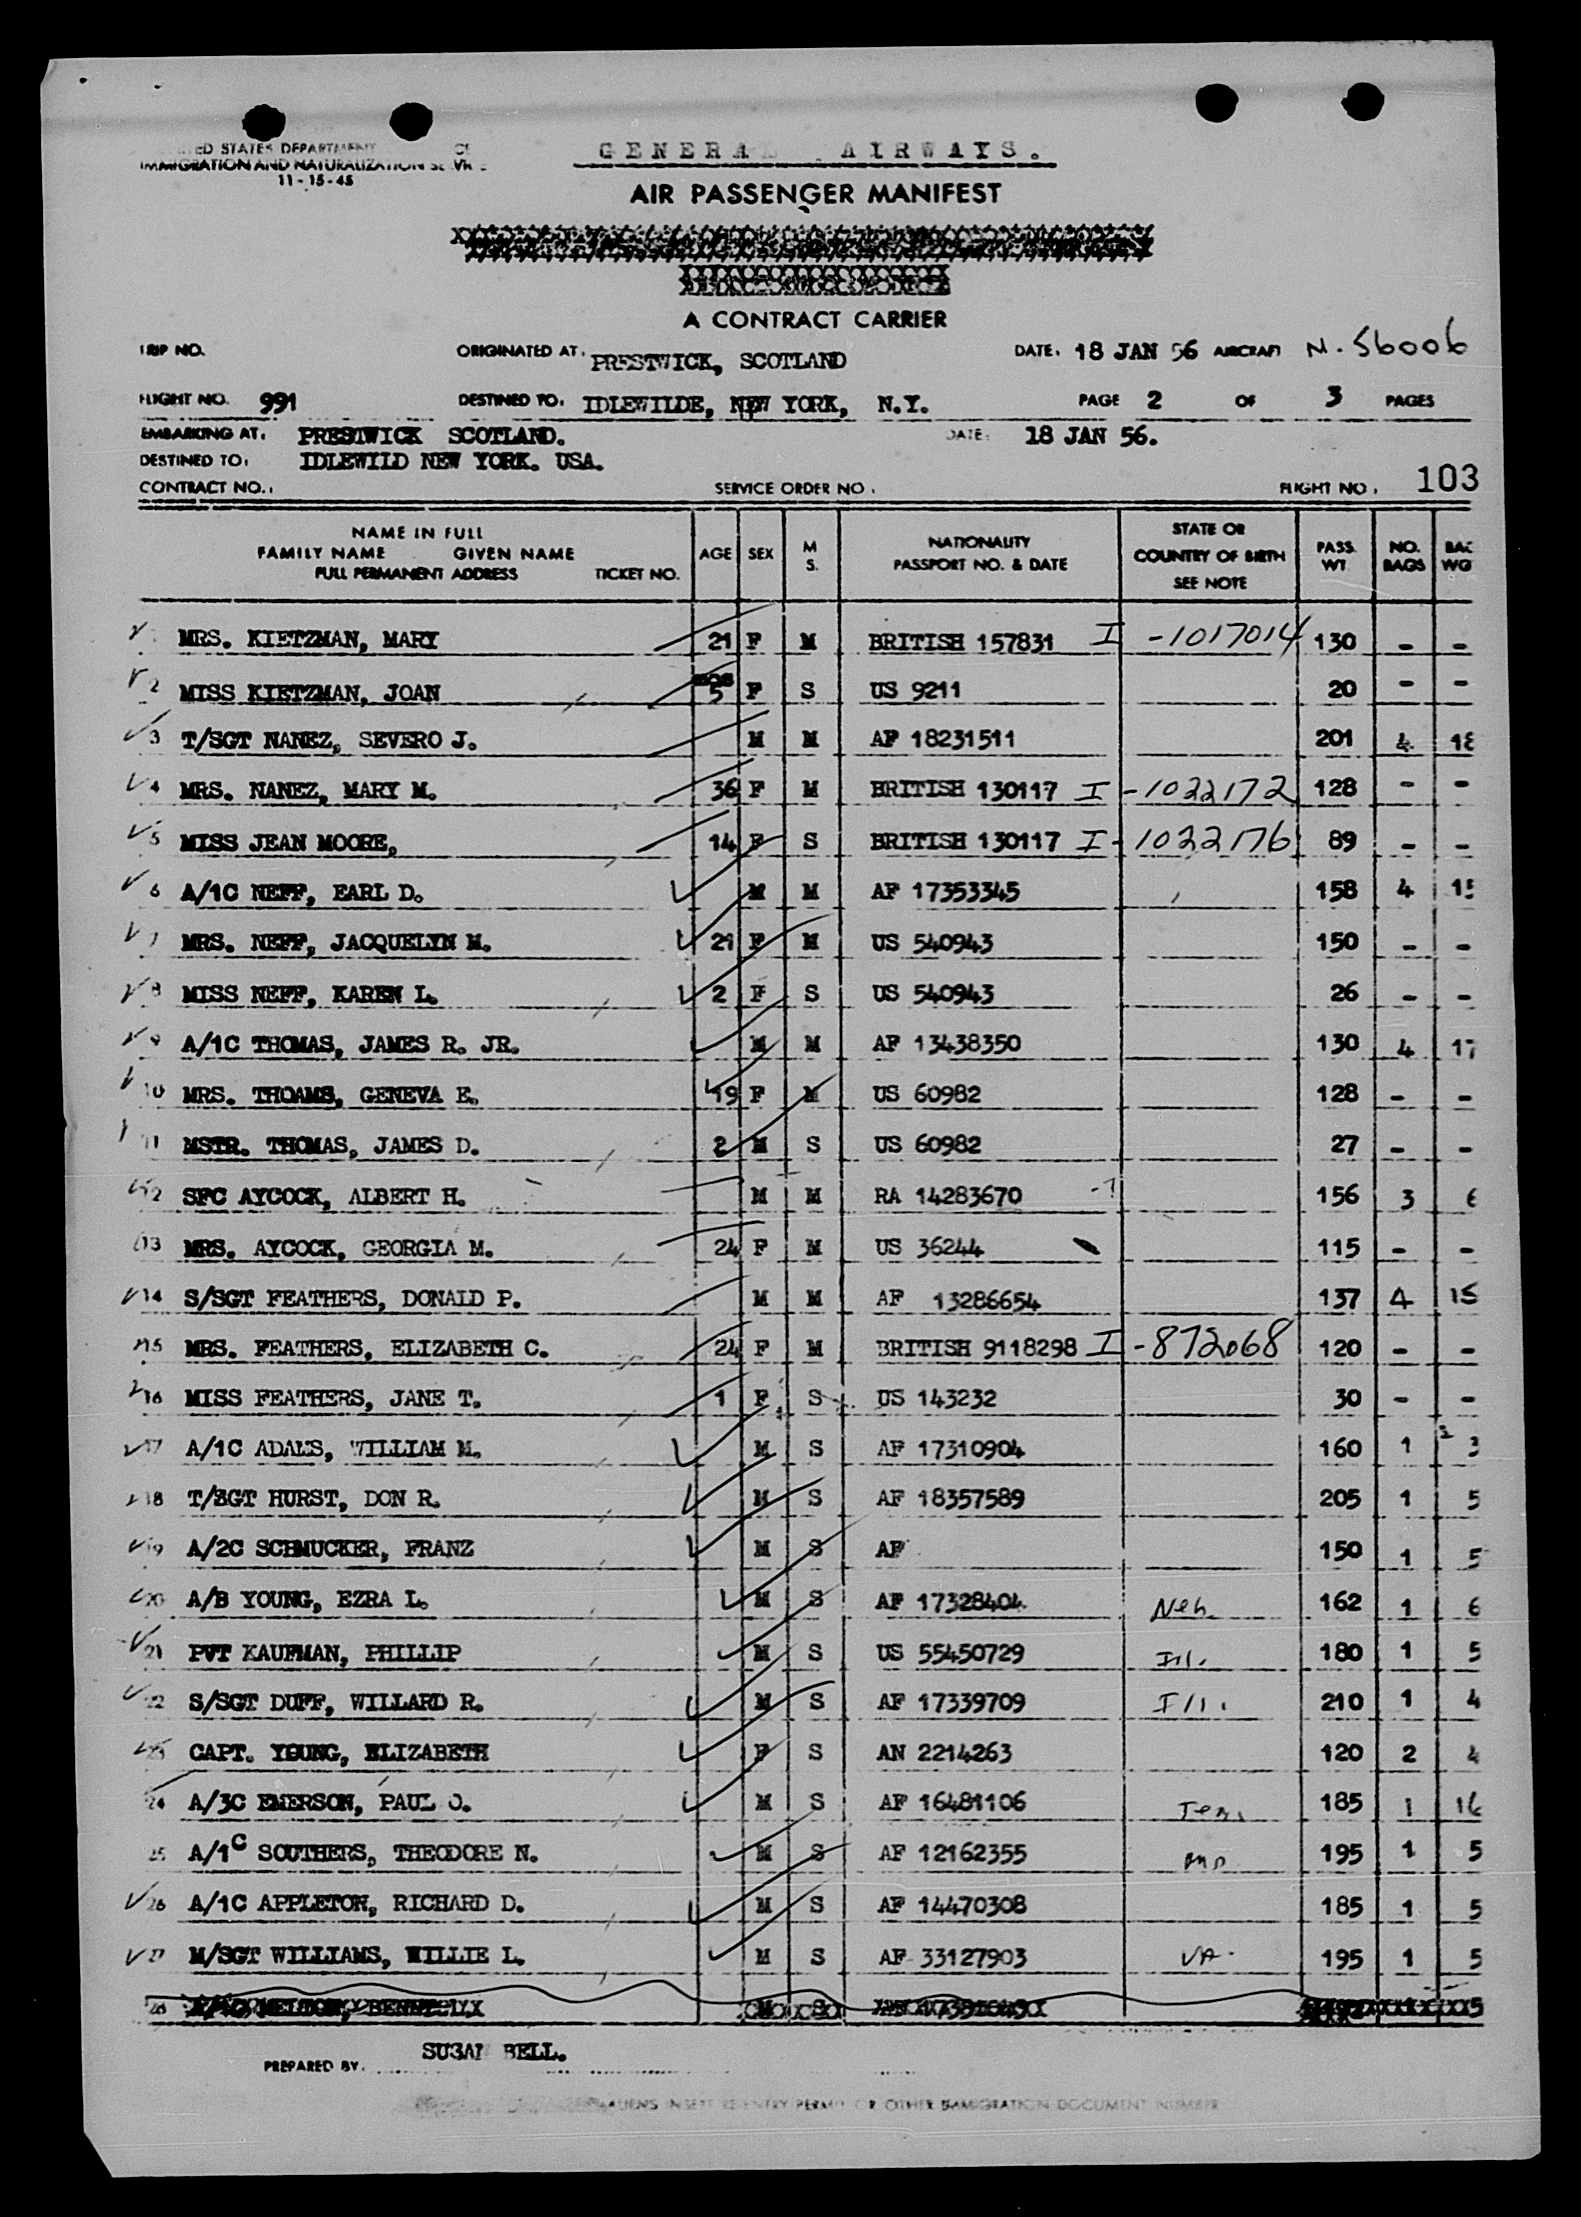 ED STATES DEPARTMENT
GENERAL AIRWAYS.
IMMIGRATION AND NATURALIZATION
11-15-45
AIR PASSENGER MANIFEST
A CONTRACT CARRIER
TRIP NO. ORIGINATED AT. PRESTWICK, SCOTLAND DATE. 18 JAN 56 AIRCRAFT N.56006
FLIGHT NO. 991 DESTINED TO. IDLEWILDE, NEW YORK, N.Y. PAGE 2 OF 3 PAGES
EMBARKING AT. PRESTWICK SCOTLAND. DATE: 18 JAN 56.
DESTINED TO. IDLEWILD NEW YORK. USA.
CONTRACT NO.. SERVICE ORDER NO. FLIGHT NO. 103
NAME IN FULL
FAMILY NAME GIVEN NAME
FULL PERMANENT ADDRESS TICKET NO. AGE SEX M S. NATIONALITY PASSPORT NO. & DATE STATE OR COUNTRY OF BIRTH SEE NOTE PASS. WT. NO. BAGS BAG WG
MRS. KIETZMAN, MARY 21 F M BRITISH 157831 I -1017014 130 - -
2 MISS KIETZMAN, JOAN 5 F S US 9211 20 - -
3 T/SGT NANEZ, SEVERO J. M M AF 18231511 201 4 18
4 MRS. NANEZ, MARY M. 36 F M BRITISH 130117 I -1022172 128 - -
5 MISS JEAN MOORE, 14 F S BRITISH 130117 I -1022176 89 - -
6 A/1C NEFF, EARL D. M M AF 17353345 158 4 15
7 MRS. NEFF, JACQUELYN M. 21 F M US 540943 150 - -
8 MISS NEFF, KAREN L. 2 F S US 540943 26 - -
9 A/1C THOMAS, JAMES R. JR. M M AF 13438350 130 4 17
10 MRS. THOAMS, GENEVA E. 19 F M US 60982 128 - -
11 MSTR. THOMAS, JAMES D. 2 M S US 60982 27 - -
12 SFC AYCOCK, ALBERT H. M M RA 14283670 156 3 6
13 MRS. AYCOCK, GEORGIA M. 24 F M US 36244 115 - -
14 S/SGT FEATHERS, DONALD P. M M AF 13286654 137 4 15
15 MRS. FEATHERS, ELIZABETH C. 24 F M BRITISH 9118298 I -872068 120 - -
16 MISS FEATHERS, JANE T. 1 F S US 143232 30 - -
17 A/1C ADAMS, WILLIAM M. M S AF 17310904 160 1 3
18 T/SGT HURST, DON R. M S AF 18357589 205 1 5
19 A/2C SCHMUCKER, FRANZ M S AF 150 1 5
20 A/B YOUNG, EZRA L. M S AF 17328404 Neb. 162 1 6
21 PVT KAUFMAN, PHILLIP M S US 55450729 Ill. 180 1 5
22 S/SGT DUFF, WILLARD R. M S AF 17339709 Ill. 210 1 4
23 CAPT. YOUNG, ELIZABETH F S AN 2214263 120 2 4
24 A/3C EMERSON, PAUL O. M S AF 16481106 185 1 16
25 A/1C SOUTHERS, THEODORE N. M S AF 12162355 195 1 5
26 A/1C APPLETON, RICHARD D. M S AF 14470308 185 1 5
27 M/SGT WILLIAMS, WILLIE L. M S AF 33127903 VA. 195 1 5
28
PREPARED BY. SUSAN BELL.
ALIENS INSERT RE-ENTRY PERMIT OR OTHER IMMIGRATION DOCUMENT NUMBER